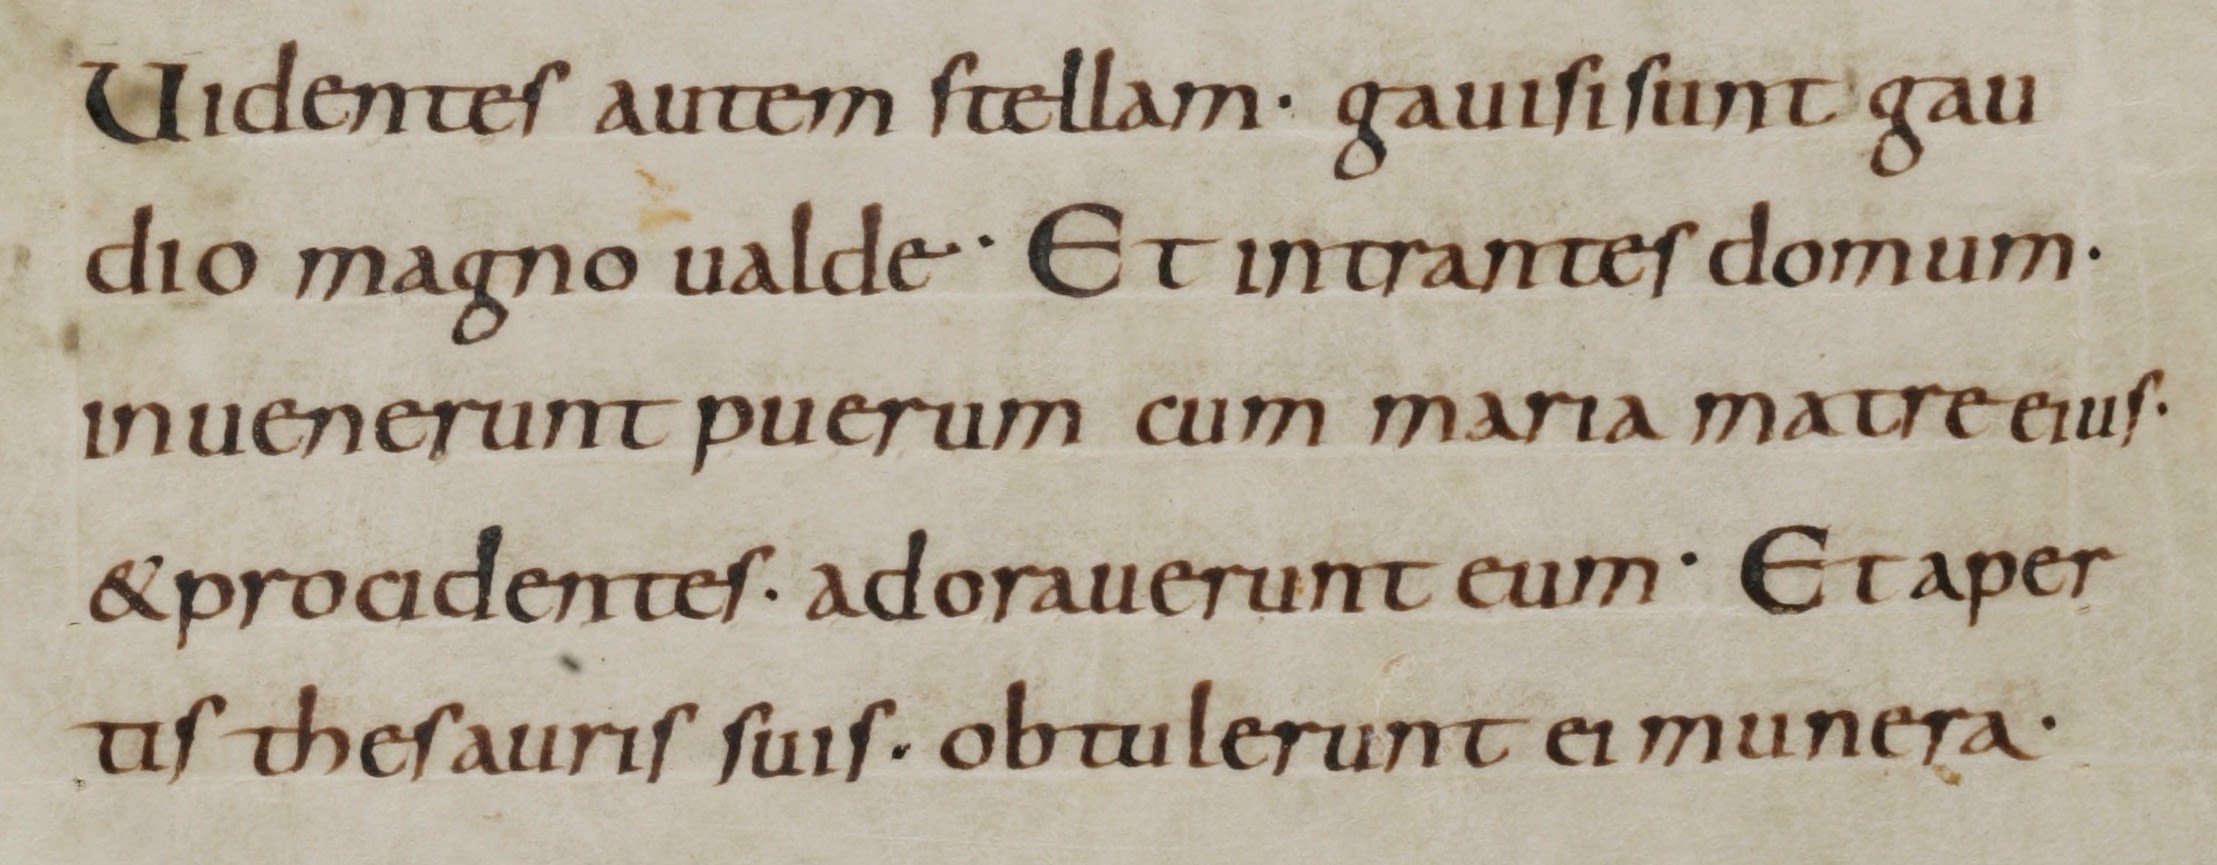 Uidentes autem stellam· gauisi sunt gau
dio magno ualde·· Et intrantes domum·
inuenerunt puerum cum maria matre eius·
& procidentes· adorauerunt eum· Et aper
tis thesauris suis· obtulerunt ei munera·